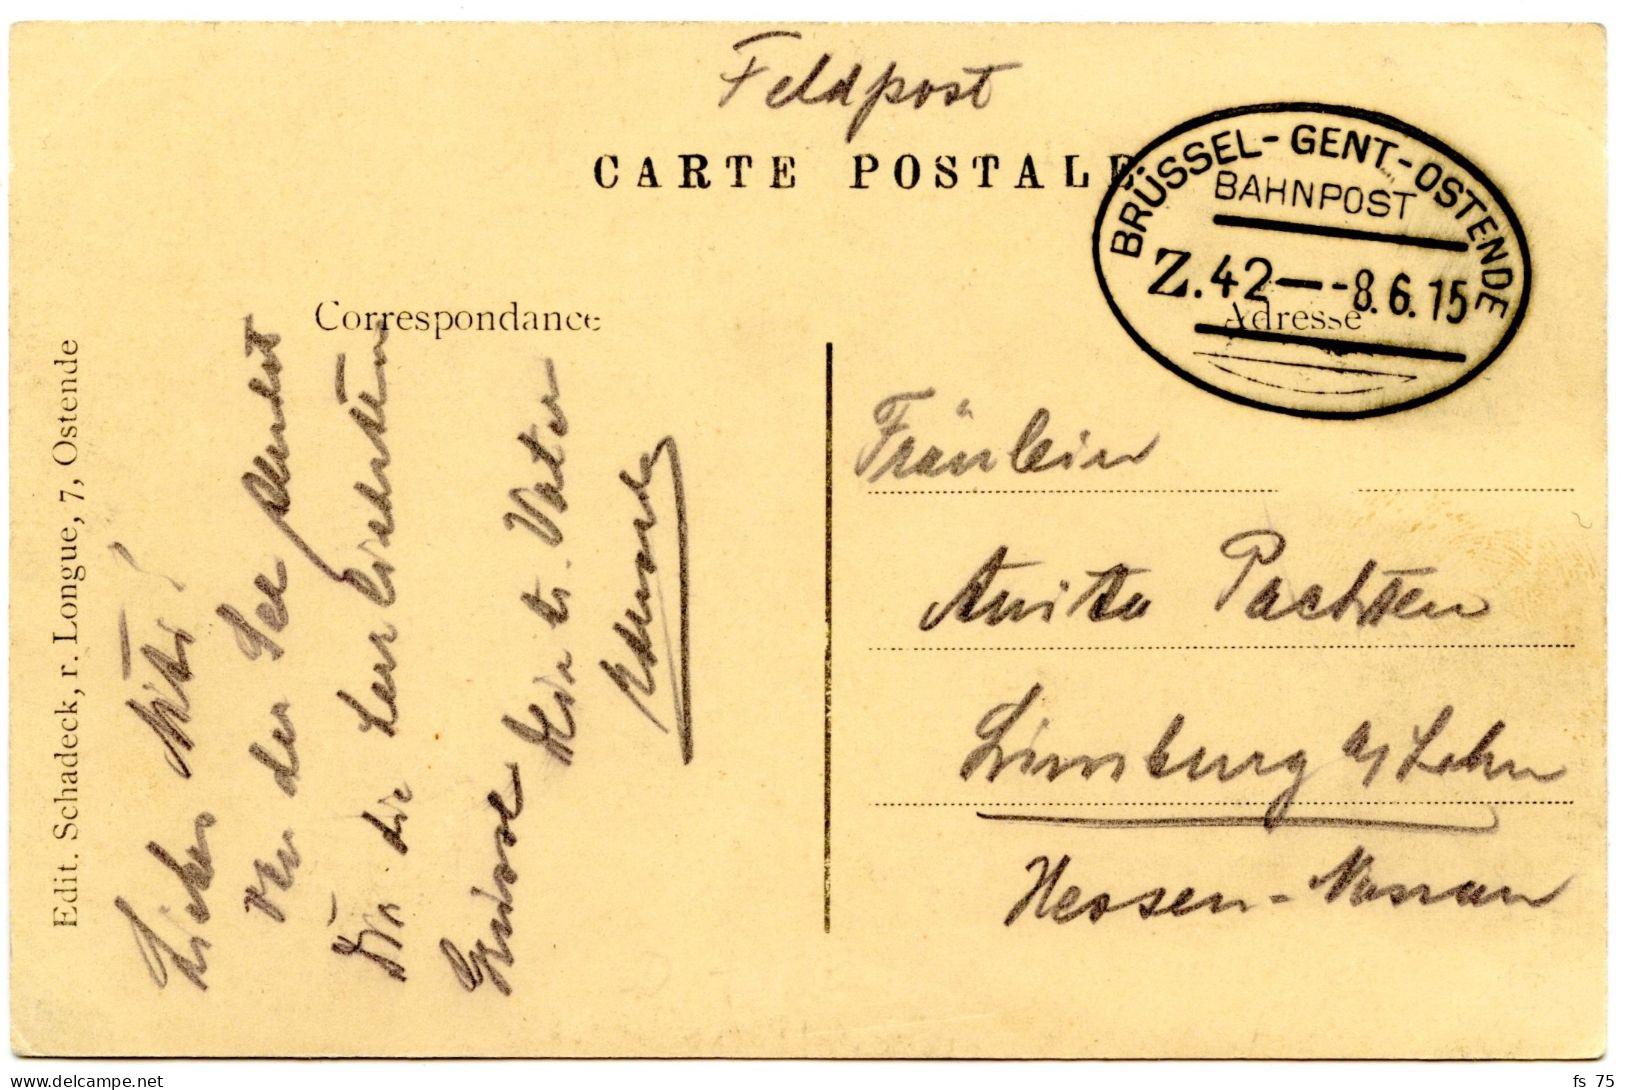 Feldpost
CARTE POSTALE
BRÜSSEL-GENT-OSTENDE
BAHNPOST
Z.42 - 8.6.15
Correspondance
Adresse
Edit. Schadeck, r. Longue, 7, Ostende
Von der See sendet
Dir die herzlichsten
Grüsse Dein tr. Vater
Fräulein
Anita Pachten
Limburg a/Lahn
Hessen-Nassau
www.delcampe.net
fs_75